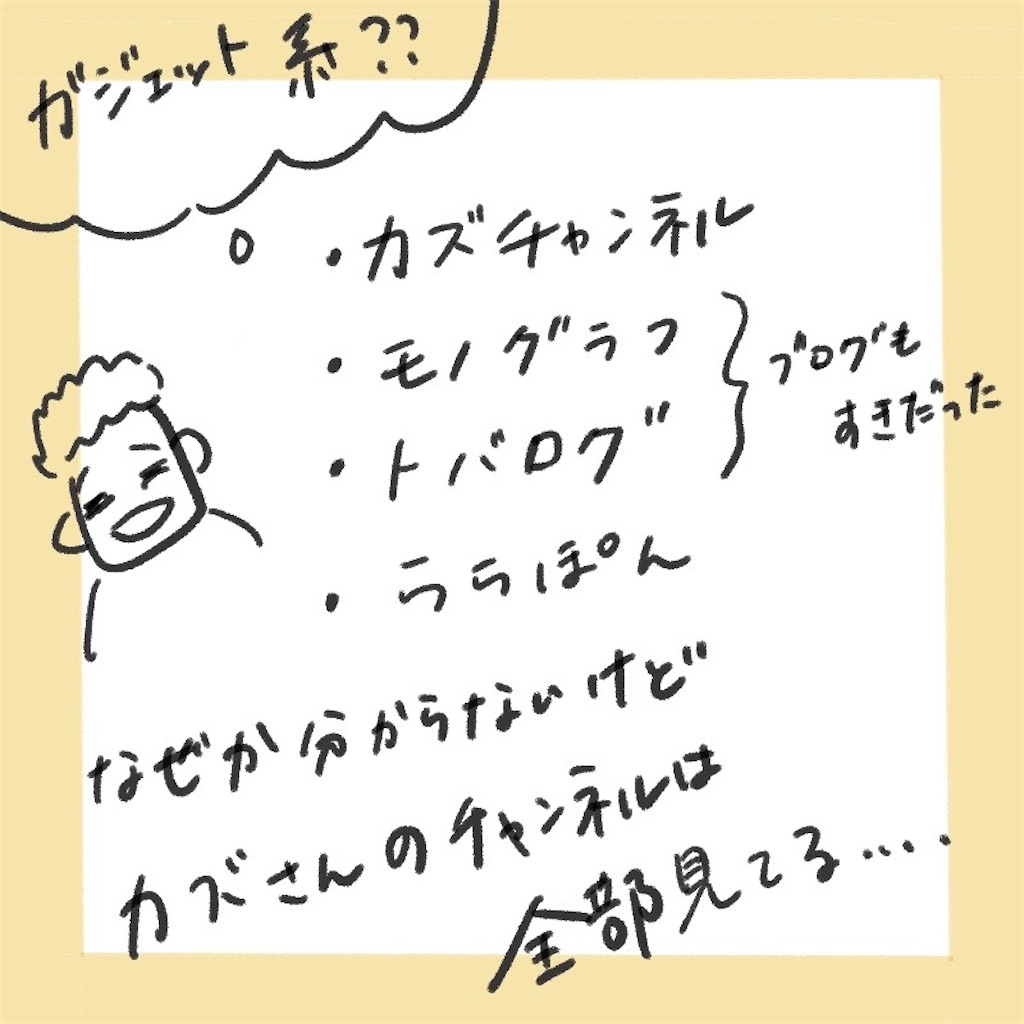 ガジェット系??
・カズチャンネル
・モノグラフ
・トバログ
ブログも
すきだった
・ララぽん
なぜか分からないけど
カズさんのチャンネルは
全部見てる....